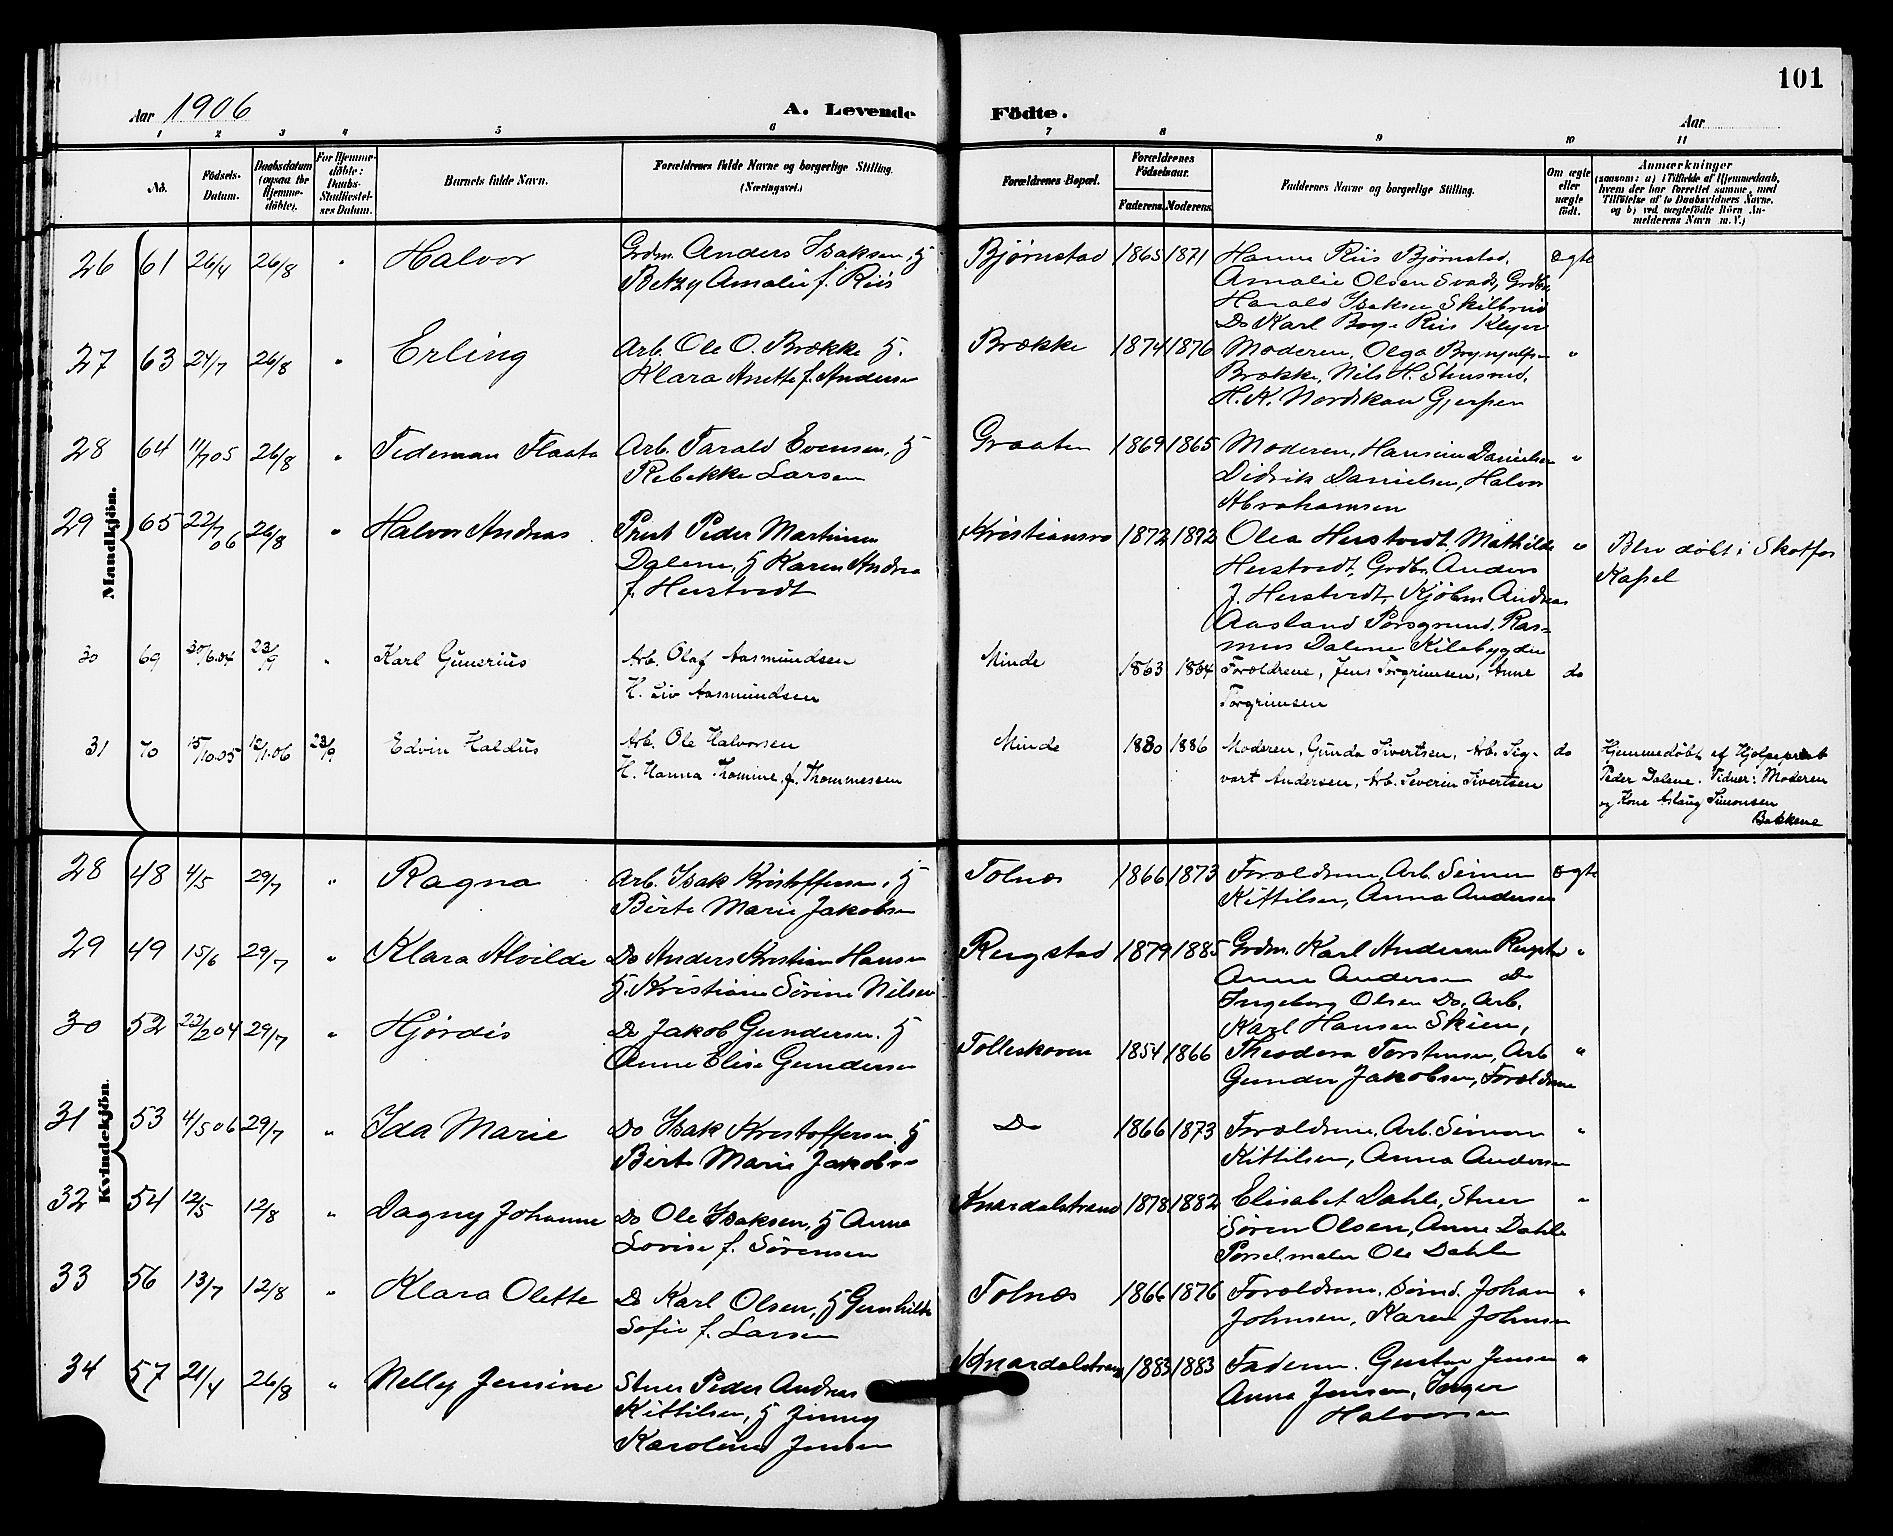 101
Aar 1906
A. Levende Födte.
Aar
1 2 3 4 5 6 7 8 9 10 11
No.
Födsels-Datum.
Daabsdatum (ogsaa for Hjemme-döbte).
For Hjemme-döbte: Daabs-Stadfæstel-ses Datum.
Barnets fulde Navn.
Forældrenes fulde Navne og borgerlige Stilling. (Næringsvei.)
Forældrenes Bopæl.
Forældrenes Födselsaar.
Faderens. Moderens.
Faddernes Navne og borgerlige Stilling.
Om ægte eller uægte födt.
Anmærkninger
(saasom: a) i Tilfælde af Hjemmedaab,
hvem der har forrettet samme, med
Tilföielse af to Daabsvidners Navne.
og b) ved uægtefödte Börn An-
melderens Navn m. V.)
Mandkjön.
26 61 26/4 26/8 " Halvor Grdm. Anders Isaksen, H Bjørnstad 1865 1871 Hanna Riis Bjørnstad, ægte
Betzy Amalie f. Riis Amalie Olsen Svads, Grdbr.
Harald Isaksen Skilbred
Do Karl Boye Riis Klyve
27 63 24/7 26/8 " Erling Arb. Ole O. Brække H. Brække 1874 1876 Moderen, Olga Brynjulfs "
Klara Anette f. Andersen Brække, Nils H. Stensrud,
H. K. Nordskau Gjerpen
28 64 11/7 05 26/8 " Tedeman Flaata Arb. Tarald Evensen, H Graaten 1869 1865 Moderen, Hansine Danielsen "
Rebekke Larsen Didrik Danielsen, Halvor
Abrahamsen
29 65 22/7 06 26/8 " Halvor Andreas Prest Peder Martinsen Kristiansro 1872 1892 Olea Herstvedt, Mathilde " Blev døbt i Skotfos
Dalene, H Karen Andrea Herstvedt, Grdbr. Anders Kapel
f. Herstvedt J. Herstvedt, Kjöbm Andreas
Aasland Porsgrund, Ras-
mus Dalene Kilebygden
30 69 30/6.04 23/9 " Karl Gunerius Arb. Olaf Aasmundsen Minde 1863 1864 Forældrene, Jens Torgrimsen, Anne do
H. Liv Aasmundsen Torgrimsen
31 70 15/10.05 12/1.06 23/9 Edvin Haldus Arb. Ole Halvorsen Minde 1880 1886 Moderen, Gunda Sivertsen, Arb. Sig- do Hjemmedöbt af Hjelpeprest
H. Hanna Thomine, f. Thommesen vart Andersen, Arb. Severin Sivertsen Peder Dalene. Vidner: Moderen
og Kone Aslaug Simonsen
Bakkene
Kvindekjön.
28 48 4/5 29/7 " Ragna Arb. Isak Kristoffersen, H Tolnæs 1866 1873 Forældrene, Arb. Simon ægte
Birte Marie Jakobsen Kittilsen, Anna Andersen
29 49 15/6 29/7 " Klara Alvilde Do Anders Kristian Hansen Ringstad 1879 1885 Grdm. Karl Andersen "
H. Kristiane Sörine Nilsen Anne Andersen Do
Ingeborg Olsen Do, Arb.
Karl Hansen Skien,
30 52 22/2 04 29/7 " Hjördis Do Jakob Gundersen, H Tolleskoven 1854 1866 Theodora Torstensen, Arb "
Anne Elise Gundersen Gunder Jakobsen, Forældrene
31 53 4/5 06 29/7 " Ida Marie Do Isak Kristoffersen, H Do 1866 1873 Forældrene, Arb. Simon "
Birte Marie Jakobsen Kittilsen, Anna Andersen
32 54 12/5 12/8 " Dagny Johanne Do Ole Isaksen, H Anna Knardalstrand 1878 1882 Elisabet Dahle, Stuer "
Lovise f. Sörensen Sören Olsen, Anna Dahle
Porsel.maler Ole Dahle
33 56 13/7 12/8 " Klara Olette Do Karl Olsen, H Gunhilde Tolnæs 1866 1876 Forældrene, Johan "
Sofie f. Larsen Johnsen, Karen Johnsen
34 57 21/4 26/8 " Nelly Jensine Stuer Peder Andreas Knardalstrand 1883 1883 Faderen, Gustav Jensen "
Kittilsen, H Jinny Anna Jensen,
Karoline Jensen Halvorsen